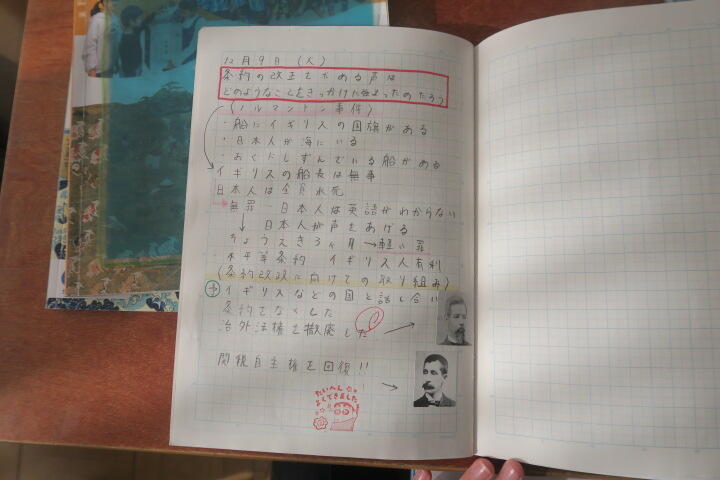 12月9日 (火)
条約の改正を求める声は
どのようなことをきっかけに強まったのだろう
(ノルマントン事件)
・船にイギリスの国旗がある
・日本人が海にいる
・おくにしずんでいる船がある
イギリスの船長は無事
日本人は全員水死
無罪 日本人は英語がわからない
日本人が声をあげる
ちょうえき3ヶ月→軽い罪
・不平等条約 イギリス人有利
(条約改政に向けての取り組み)
イギリスなどの国と話し合い
条約をなくした
治外法権を撤廃した
関税自主権を回復!!
たいへん
よくできました